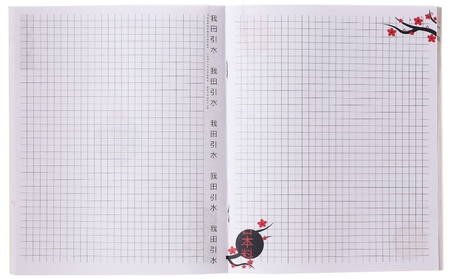 我田引水
我田引水
我田引水
我田引水
我田引水
日本料